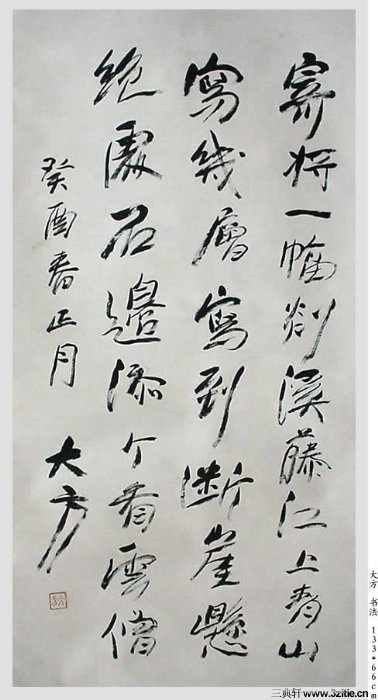 寄将一幅剡溪藤江上青山
写几层写到断崖悬
绝处石边添个看云僧
癸酉春正月
大方
大方 书法 133*66c
三典轩 www.3zitie.cn